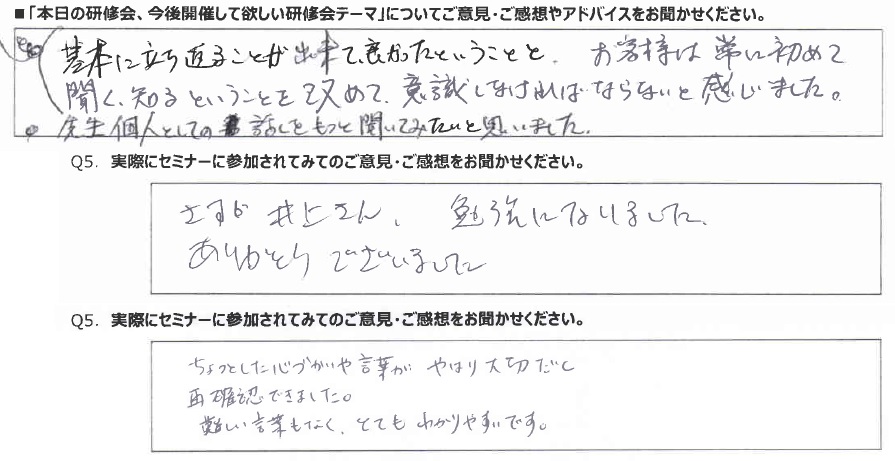 ■「本日の研修会、今後開催して欲しい研修会テーマ」についてご意見・ご感想やアドバイスをお聞かせください。
基本に立ち返ることが出来て良かったということと、お客様は常に初めて
聞く、知るということを改めて、意識しなければならないと感じました。
。先生個人としての話しをもっと聞いてみたいと思いました。
Q5. 実際にセミナーに参加されてみてのご意見・ご感想をお聞かせください。
さすが井上さん、勉強になりました。
ありがとうございました
Q5. 実際にセミナーに参加されてみてのご意見・ご感想をお聞かせください。
ちょっとした心づかいや言葉がやはり大切だと
再確認できました。
難しい言葉もなく、とてもわかりやすいです。